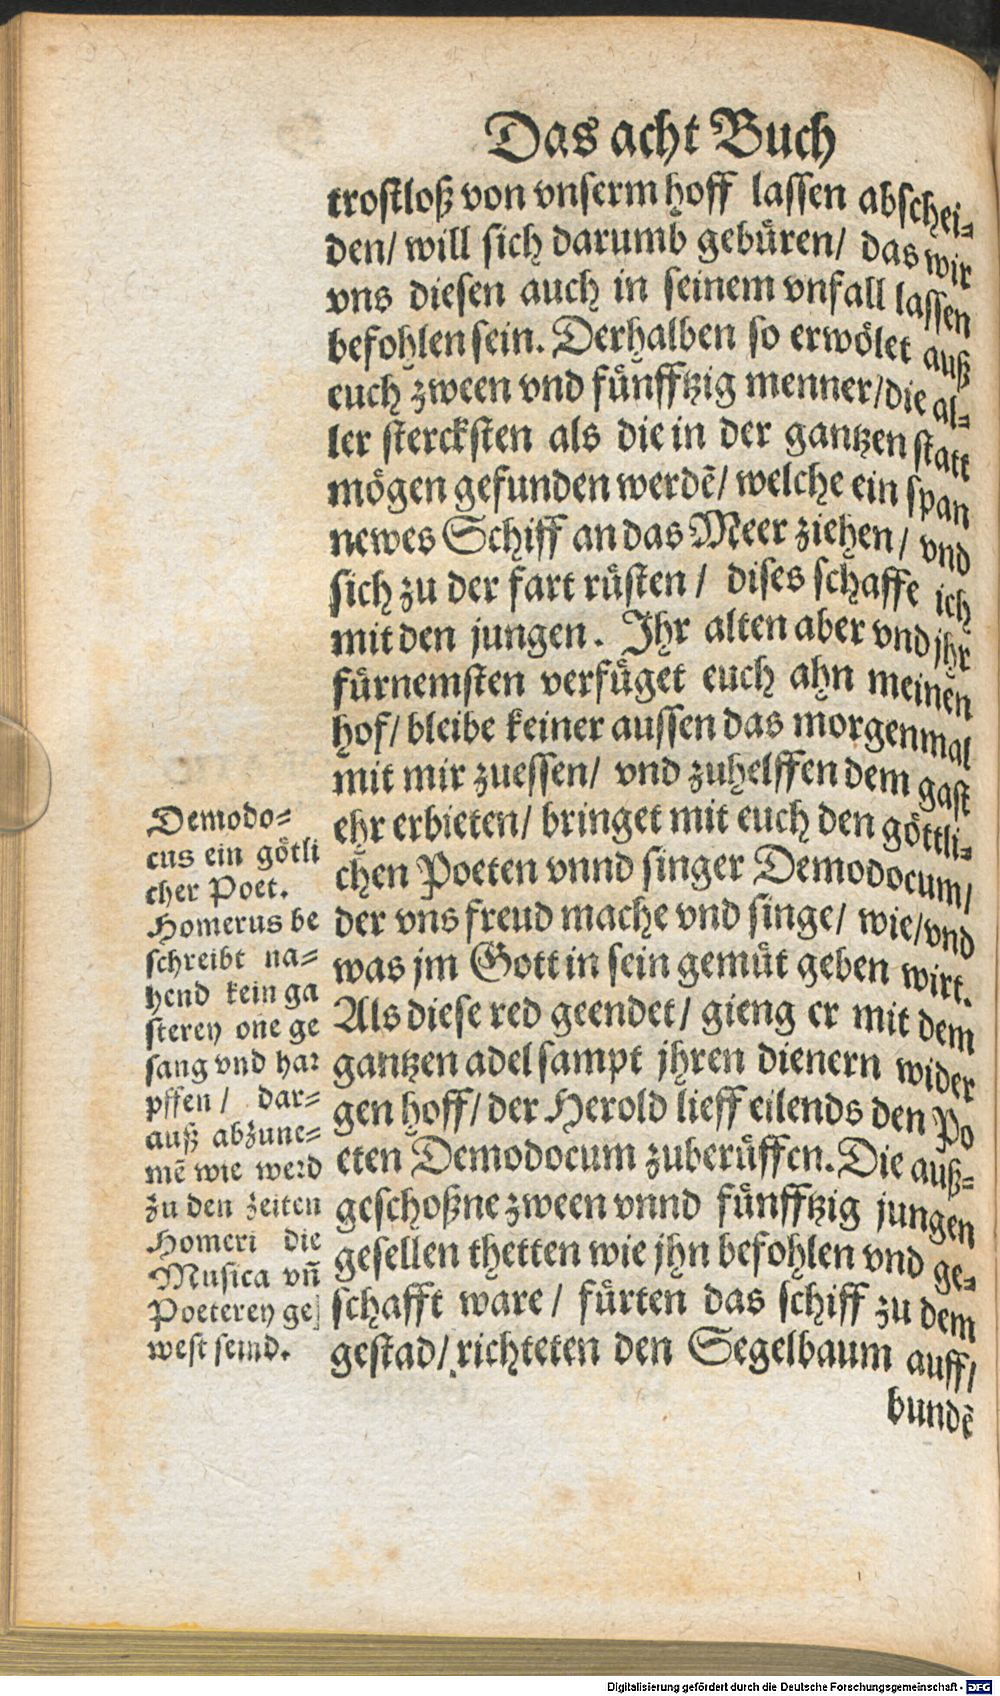 Das acht Buch
trostloß von vnserm hoff lassen abschei⸗
den/ will sich darumb gebüren/ das wir
vns diesen auch in seinem vnfall lassen
befohlen sein. Derhalben so erwölet auß
euch zween vnd fünfftzig menner/die al⸗
ler stercksten als die in der gantzen statt
mögen gefunden werdē/ welche ein span
newes Schiff an das Meer ziehen/ vnd
sich zu der fart rüsten/ dises schaffe ich
mit den jungen. Ihr alten aber vnd jhr
fürnemsten verfüget euch ahn meinen
hof/ bleibe keiner aussen das morgenmal
mit mir zuessen/ vnd zuhelffen dem gast
ehr erbieten/ bringet mit euch den göttli⸗
chen Poeten vnnd singer Demodocum/
der vns freud mache vnd singe/ wie/vnd
was jm Gott in sein gemüt geben wirt.
Als diese red geendet/ gieng er mit dem
gantzen adel sampt jhren dienern wider
gen hoff/ der Herold lieff eilends den Po
eten Demodocum zuberüffen. Die auß⸗
geschoßne zween vnnd fünfftzig jungen
gesellen thetten wie jhn befohlen vnd ge⸗
schafft ware/ fürten das schiff zu dem
gestad/ richteten den Segelbaum auff/
bundē
Demodo⸗
cus ein götli
cher Poet.
Homerus be
schreibt na⸗
hend kein ga
sterey one ge
sang vnd har
pffen/ dar⸗
auß abzune⸗
mē wie werd
zu den zeiten
Homeri die
Musica vñ
Poeterey ge
west seind.
Digitalisierung gefördert durch die Deutsche Forschungsgemeinschaft - DFG